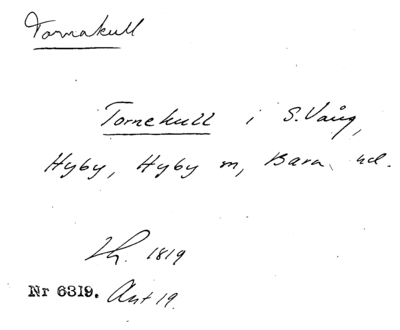 Tornakull
Tornekull i S. Vång,
Hyby, Hyby m, Bara hd.
1819
Nr 6319. Ant 19.